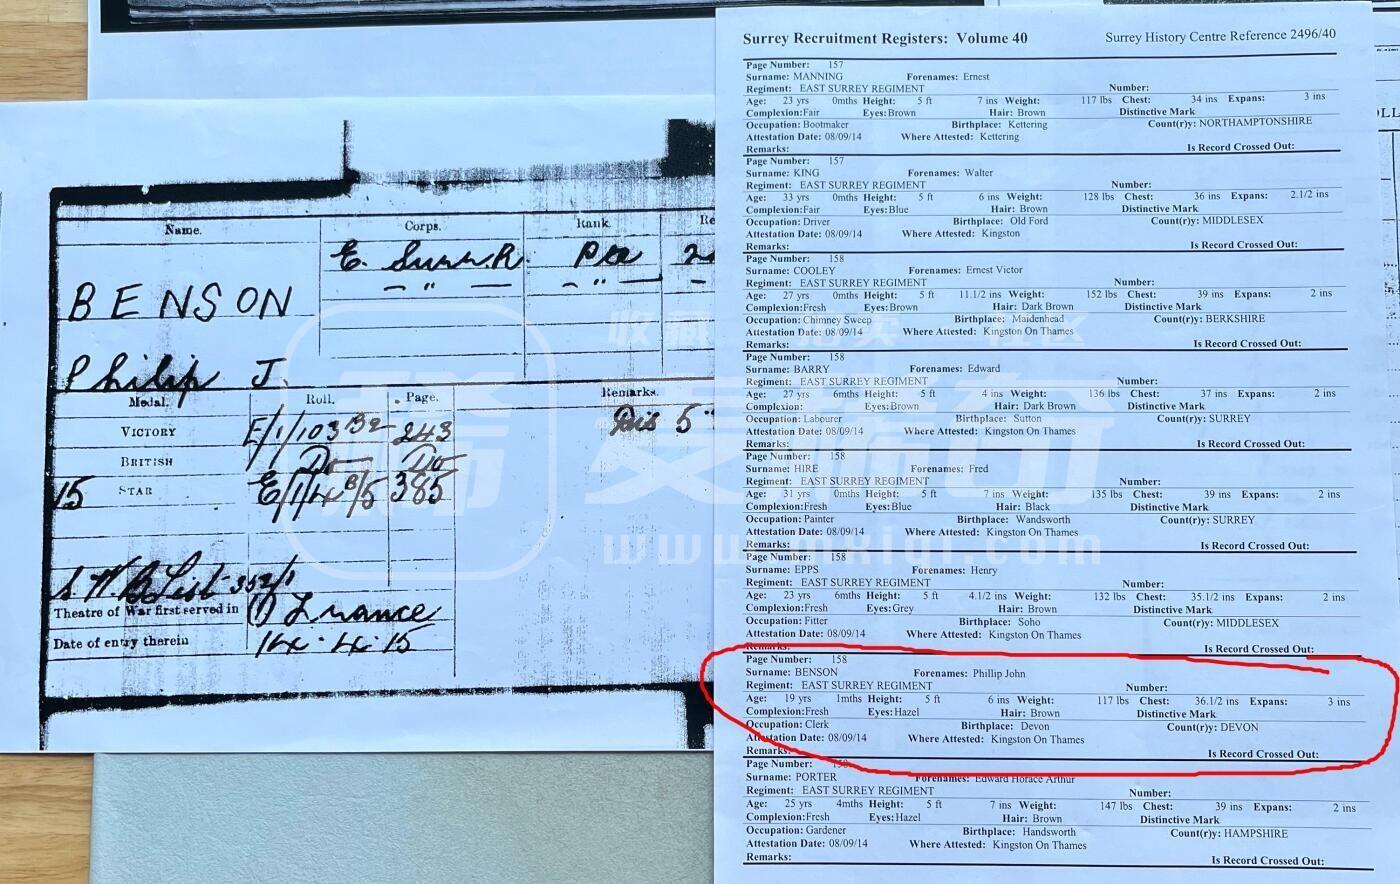 Name.
Corps.
Rank.
Re
E. Surr. R.
Pte
2
BENSON
- " -
- " -
Philip J.
Medal.
Roll.
Page.
Remarks.
VICTORY
E/1/103 B2
243
Dis 5
BRITISH
Do
Do
15 STAR
E/1/4 B/5
385
S.W.B. List 353/1
Theatre of War first served in
(1) France
Date of entry therein
14.4.15
Surrey Recruitment Registers: Volume 40 Surrey History Centre Reference 2496/40
Page Number: 157
Surname: MANNING Forenames: Ernest
Regiment: EAST SURREY REGIMENT Number:
Age: 23 yrs 0mths Height: 5 ft 7 ins Weight: 117 lbs Chest: 34 ins Expans: 3 ins
Complexion:Fair Eyes:Brown Hair: Brown Distinctive Mark
Occupation: Bootmaker Birthplace: Kettering Count(r)y: NORTHAMPTONSHIRE
Attestation Date: 08/09/14 Where Attested: Kettering
Remarks: Is Record Crossed Out:
Page Number: 157
Surname: KING Forenames: Walter
Regiment: EAST SURREY REGIMENT Number:
Age: 33 yrs 0mths Height: 5 ft 6 ins Weight: 128 lbs Chest: 36 ins Expans: 2.1/2 ins
Complexion:Fair Eyes:Blue Hair: Brown Distinctive Mark
Occupation: Driver Birthplace: Old Ford Count(r)y: MIDDLESEX
Attestation Date: 08/09/14 Where Attested: Kingston
Remarks: Is Record Crossed Out:
Page Number: 158
Surname: COOLEY Forenames: Ernest Victor
Regiment: EAST SURREY REGIMENT Number:
Age: 27 yrs 0mths Height: 5 ft 11.1/2 ins Weight: 152 lbs Chest: 39 ins Expans: 2 ins
Complexion:Fresh Eyes:Brown Hair: Dark Brown Distinctive Mark
Occupation: Chimney Sweep Birthplace: Maidenhead Count(r)y: BERKSHIRE
Attestation Date: 08/09/14 Where Attested: Kingston On Thames
Remarks: Is Record Crossed Out:
Page Number: 158
Surname: BARRY Forenames: Edward
Regiment: EAST SURREY REGIMENT Number:
Age: 27 yrs 6mths Height: 5 ft 4 ins Weight: 136 lbs Chest: 37 ins Expans: 2 ins
Complexion: Eyes:Brown Hair: Dark Brown Distinctive Mark
Occupation: Labourer Birthplace: Sutton Count(r)y: SURREY
Attestation Date: 08/09/14 Where Attested: Kingston On Thames
Remarks: Is Record Crossed Out:
Page Number: 158
Surname: HIRE Forenames: Fred
Regiment: EAST SURREY REGIMENT Number:
Age: 31 yrs 0mths Height: 5 ft 7 ins Weight: 135 lbs Chest: 39 ins Expans: 2 ins
Complexion:Fresh Eyes:Blue Hair: Black Distinctive Mark
Occupation: Painter Birthplace: Wandsworth Count(r)y: SURREY
Attestation Date: 08/09/14 Where Attested: Kingston On Thames
Remarks: Is Record Crossed Out:
Page Number: 158
Surname: EPPS Forenames: Henry
Regiment: EAST SURREY REGIMENT Number:
Age: 23 yrs 6mths Height: 5 ft 4.1/2 ins Weight: 132 lbs Chest: 35.1/2 ins Expans: 2 ins
Complexion:Fresh Eyes:Grey Hair: Brown Distinctive Mark
Occupation: Fitter Birthplace: Soho Count(r)y: MIDDLESEX
Attestation Date: 08/09/14 Where Attested: Kingston On Thames
Remarks: Is Record Crossed Out:
Page Number: 158
Surname: BENSON Forenames: Phillip John
Regiment: EAST SURREY REGIMENT Number:
Age: 19 yrs 1mths Height: 5 ft 6 ins Weight: 117 lbs Chest: 36.1/2 ins Expans: 3 ins
Complexion:Fresh Eyes:Hazel Hair: Brown Distinctive Mark
Occupation: Clerk Birthplace: Devon Count(r)y: DEVON
Attestation Date: 08/09/14 Where Attested: Kingston On Thames
Remarks: Is Record Crossed Out:
Page Number: 158
Surname: PORTER Forenames: Edward Horace Arthur
Regiment: EAST SURREY REGIMENT Number:
Age: 25 yrs 4mths Height: 5 ft 7 ins Weight: 147 lbs Chest: 39 ins Expans: 2 ins
Complexion:Fresh Eyes:Hazel Hair: Brown Distinctive Mark
Occupation: Gardener Birthplace: Handsworth Count(r)y: HAMPSHIRE
Attestation Date: 08/09/14 Where Attested: Kingston On Thames
Remarks: Is Record Crossed Out: